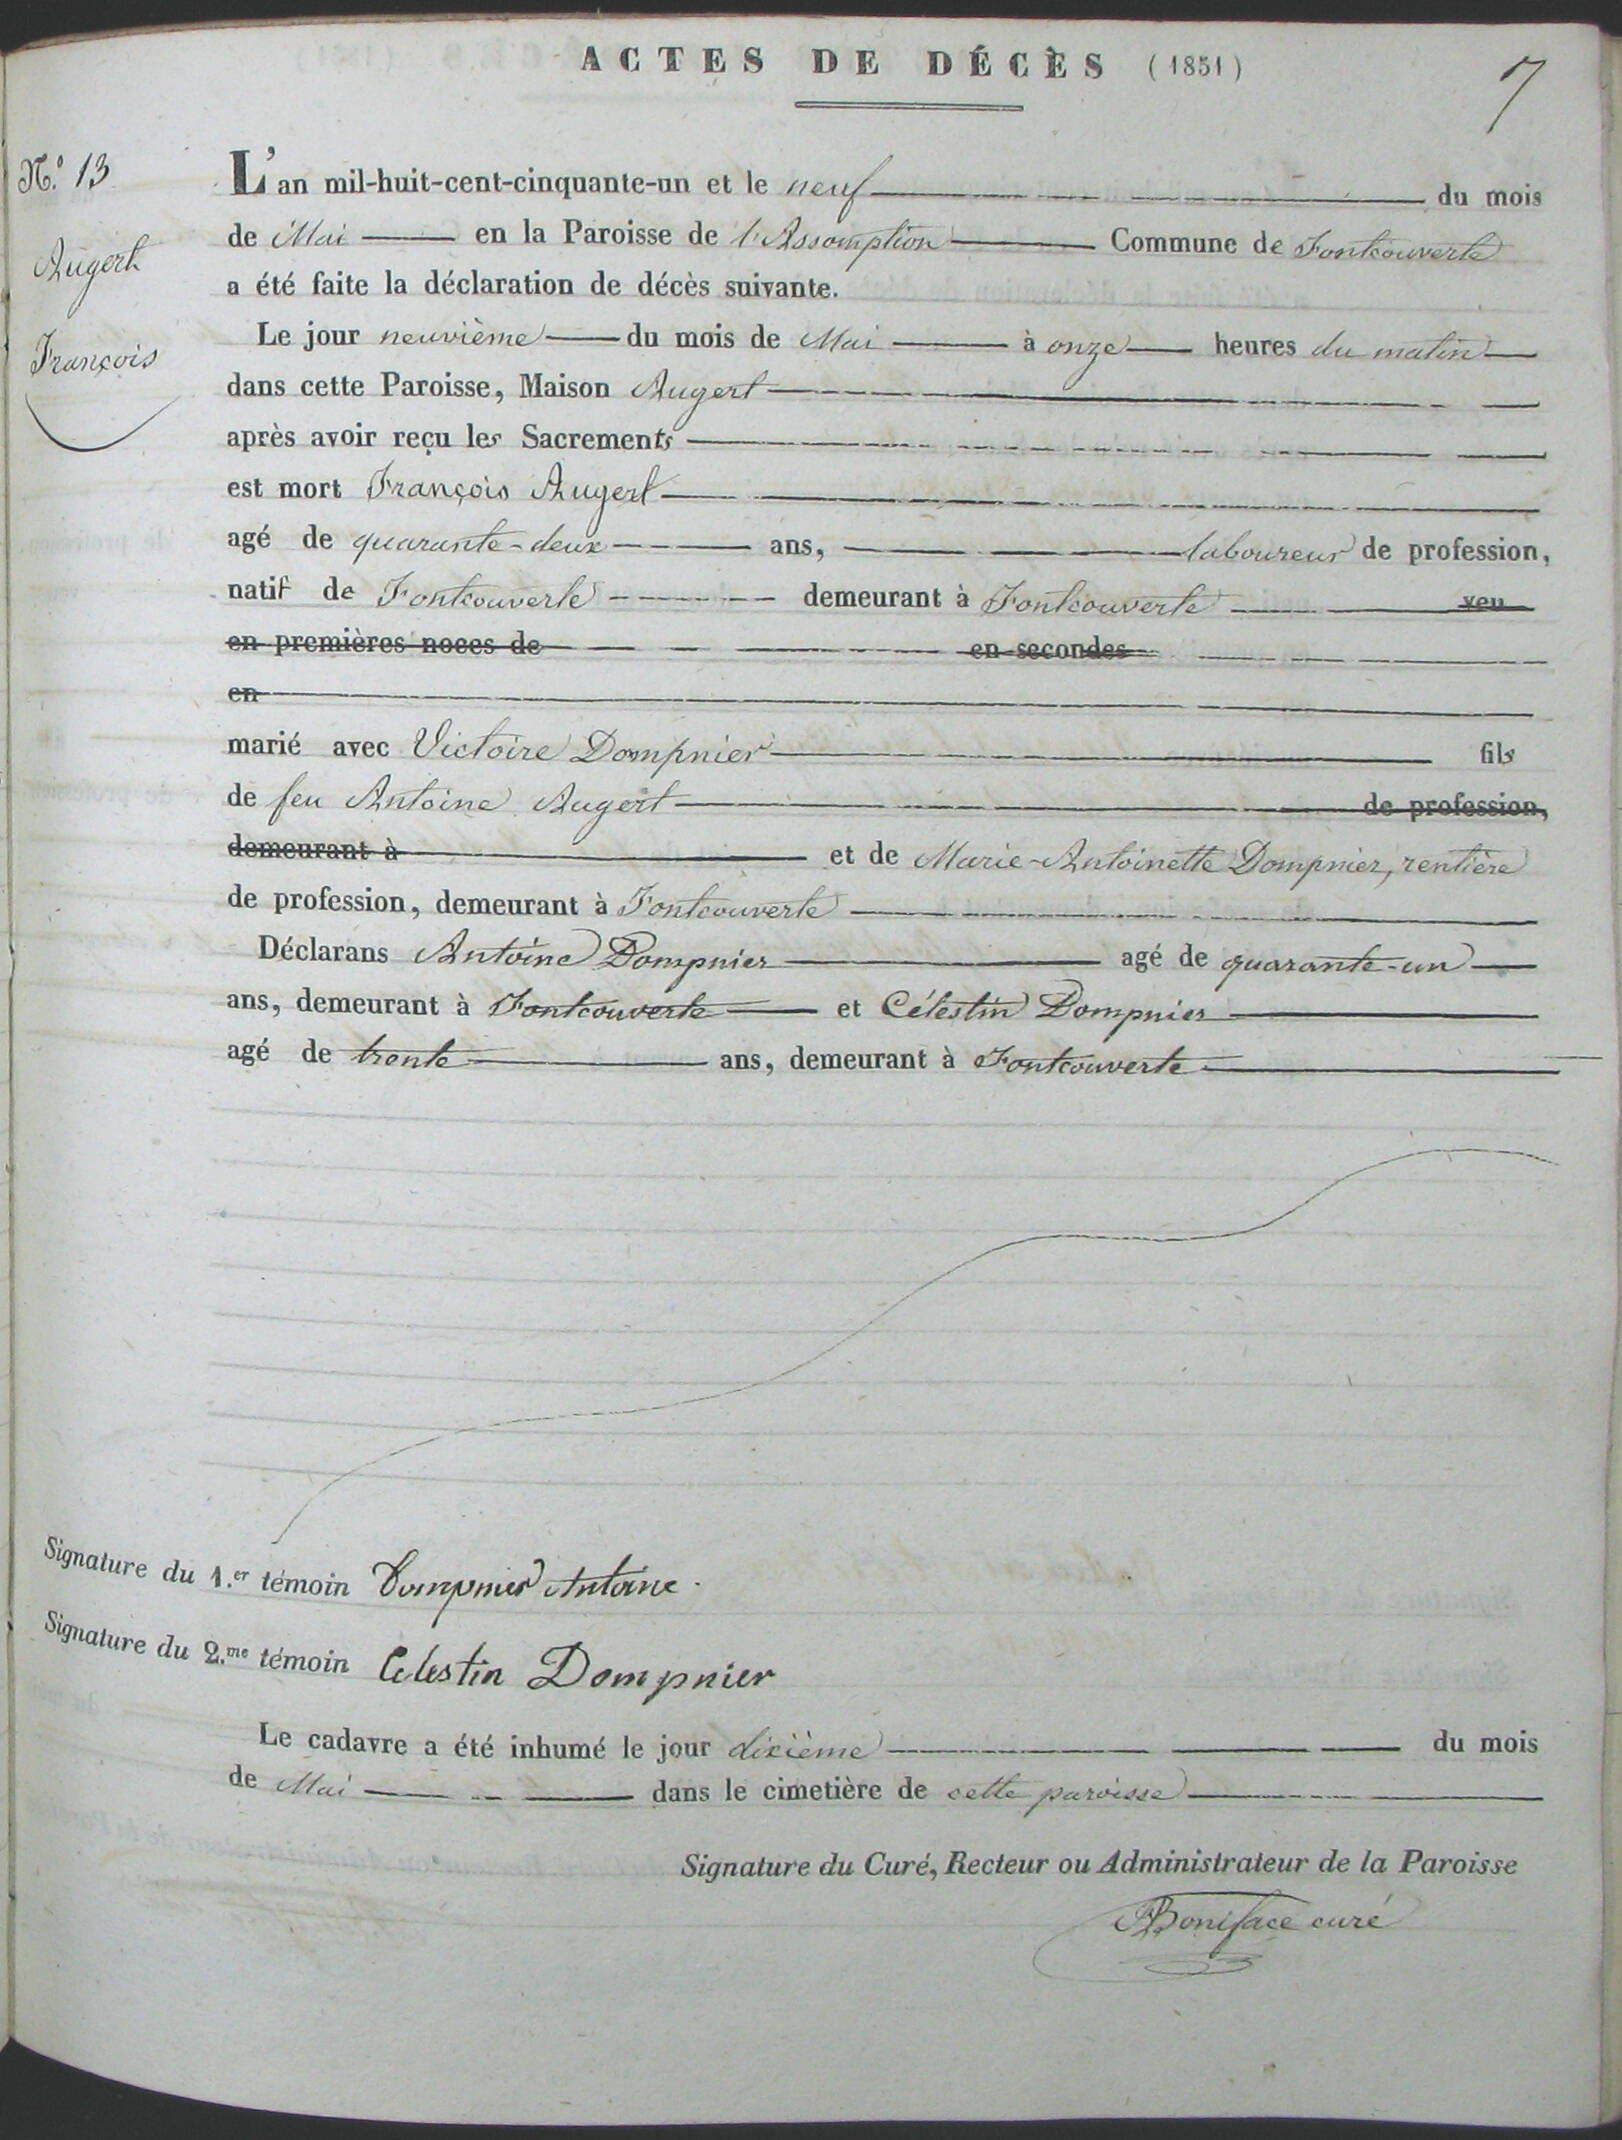 ACTES DE DÉCÈS (1851)
7
N.º 13
Augert
François
L'an mil-huit-cent-cinquante-un et le neuf du mois
de Mai en la Paroisse de l'Assomption Commune de Fontcouverte
a été faite la déclaration de décès suivante.
Le jour neuvième du mois de Mai à onze heures du matin
dans cette Paroisse, Maison Augert
après avoir reçu les Sacrements
est mort François Augert
agé de quarante-deux ans, laboureur de profession,
natif de Fontcouverte demeurant à Fontcouverte veu
en premières noces de en secondes
en
marié avec Victoire Dompnier fils
de feu Antoine Augert de profession,
demeurant à et de Marie-Antoinette Dompnier, rentière
de profession, demeurant à Fontcouverte
Déclarans Antoine Dompnier agé de quarante-un
ans, demeurant à Fontcouverte et Célestin Dompnier
agé de trente ans, demeurant à Fontcouverte
Signature du 1.er témoin Dompnier Antoine.
Signature du 2.me témoin Celestin Dompnier
Le cadavre a été inhumé le jour dixième du mois
de Mai dans le cimetière de cette paroisse
Signature du Curé, Recteur ou Administrateur de la Paroisse
Boniface curé